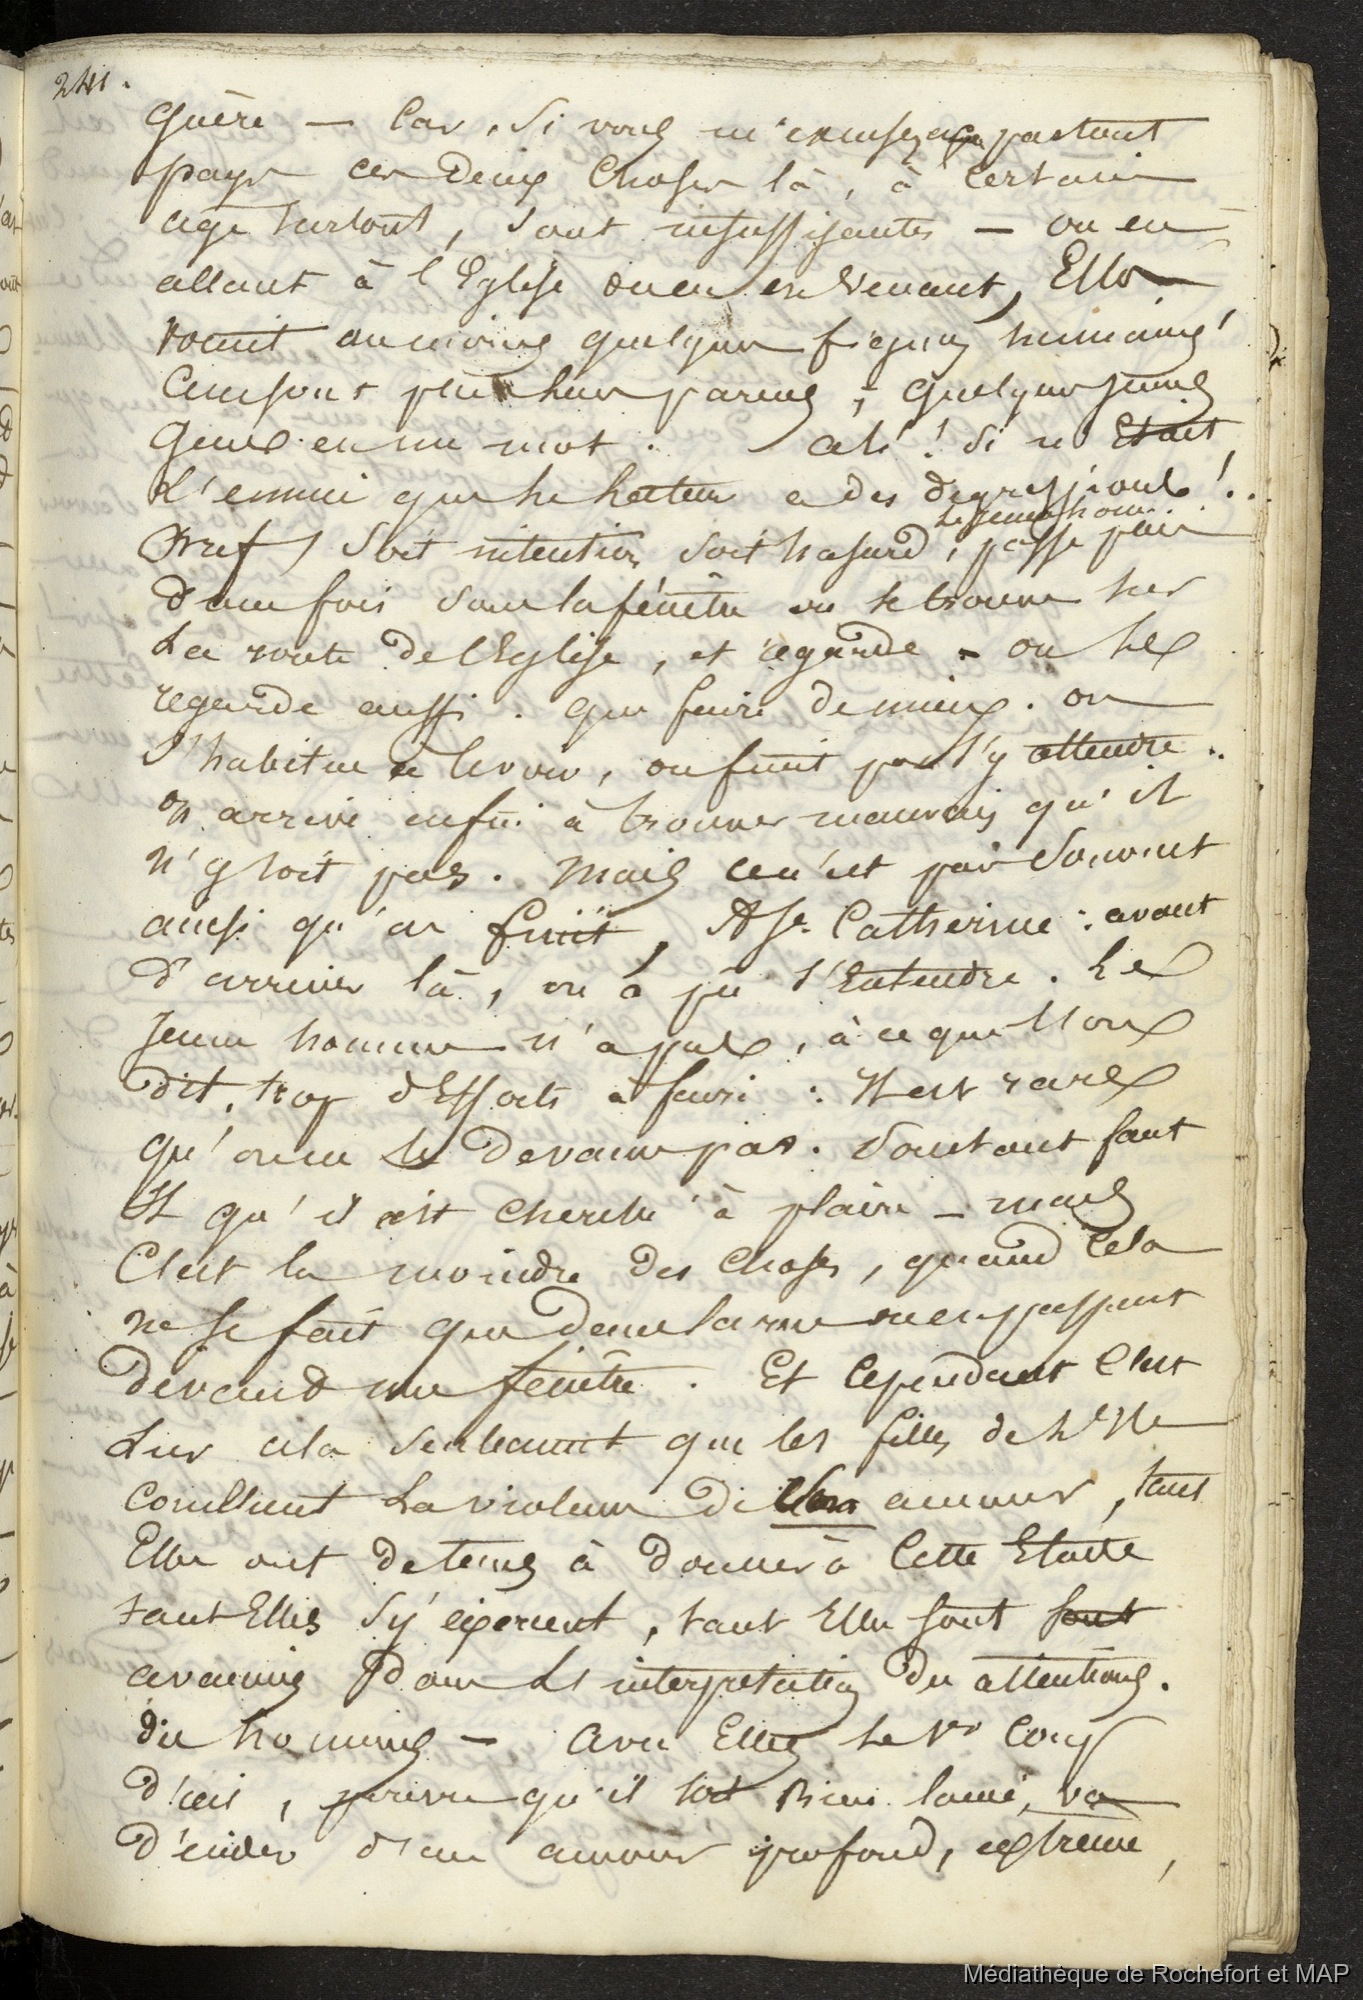 241.
guère — Car, si vous m'excusez partout
pays ces deux choses là, à certain
age surtout, sont insuffisantes — ou en
allant à l'Eglise ou en en venant, Elles
voient au moins quelques figures humaines
quelques jeunes
gens en un mot. ah! si n'Etait
l'ennui que le lecteur a des degressions!..
le jeune homme
Bref, soit intention soit hasard, passe plus
d'une fois sous la fénêtre ou se trouve sur
La route de l'Eglise, et regarde — on le
regarde aussi. que faire de mieux. on
s'habitue à le voir, on finit par s'y attendre..
on arrive enfin à trouver mauvais qu'il
n'y soit pas. Mais ce n'est pas souvent
ainsi qu'on finit, A Ste Catherine: avant
d'arriver là, on a pu s'Entendre. Le
jeune homme n'a pas, à ce que l'on
dit, trop d'Efforts à faire: Il est rare
qu'on ne le devance pas. Pourtant faut
Il qu'il ait cherché à plaire — mais
C'est la moindre des choses, quand cela
ne se fait que dans la rue ou en passant
devant une fenêtre. Et cependant c'est
sur cela seulement que les filles de
la violence de leurs amours, tant
Elles ont de tems à donner à cette Etude
tant Elles s'y exercent, tant Elles sont sont
avancées dans les interpretations des attentions.
des hommes — avec Elles le 1er coup
d'œil, pourvu qu'il soit bien lancé, va
décider d'un amour profond, extreme,
Médiathèque de Rochefort et MAP